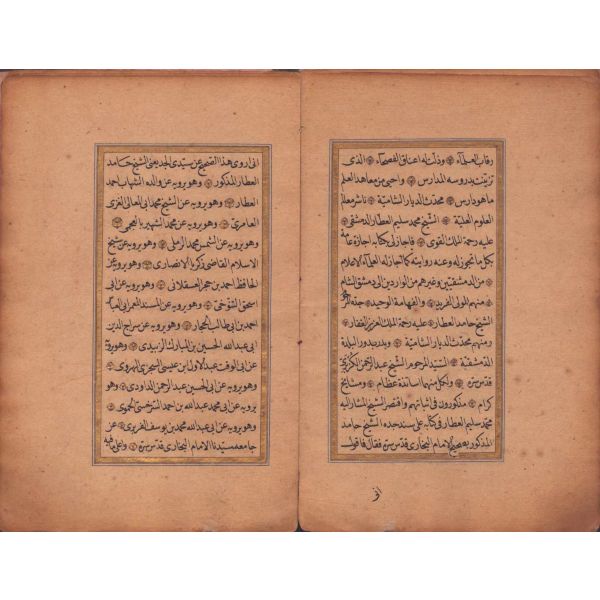 رقاب العلماء وذلت له اعناق الفصحاء الذى
تزينت بدروسه المدارس واحيى من معاهد العلم
ما هو دارس محدث الديار الشامية ناشر معالم
العلوم العلية الشيخ محمد سليم العطار الدمشقى
عليه رحمة الملك القوى فاجازلى بكتابه اجازة عامة
بكل ما تجوز له وعنه روايته كما اجاز له العلماء الاعلام
من الدمشقيين وغيرهم من الواردين الى دمشق الشام
منهم المولى الفريد والفهامة الوحيد جده
الشيخ حامد العطار عليه رحمة الملك العزيز الغفار
ومنهم محدث الديار الشامية وبدر بدور البلدة
الدمشقية السند المرحوم الشيخ عبد الرحمن الكزبرى
قدس سره ولكل منهما اساتذة عظام ومشايخ
كرام مذكورون فى اثباتهم واقتصر الشيخ المشار اليه
محمد سليم العطار فى كتابه على سند جده الشيخ حامد
المذكور بصحيح الامام البخارى قدس سره فقال فاقول
انى
انى اروى هذا الصحيح عن سيدى الجد يعنى الشيخ حامد
العطار المذكور وهو يرويه عن والده الشهاب احمد
العطار وهو يرويه عن الشيخ محمد ابى المعالى الغزى
العامرى وهو يرويه عن محمد الشهير بالعجمى
وهو يرويه عن الشمس محمد الرملى وهو يرويه عن شيخ
الاسلام القاضى زكريا الانصارى وهو يرويه عن
الحافظ احمد بن حجر العسقلانى وهو يرويه عن ابى
اسحق التنوخى وهو يرويه عن المسند المعمر ابى العباس
احمد بن ابى طالب الحجار وهو يرويه عن سراج الدين
ابى عبد الله الحسين بن المبارك الزبيدى وهو يرويه
عن ابى الوقت عبد الاول بن عيسى السجزى الهروى
وهو يرويه عن ابى الحسين عبد الرحمن الداودى وهو
يرويه عن ابى محمد عبد الله بن احمد السرخسى الحموى
وهو يرويه عن ابى عبد الله محمد بن يوسف الفربرى عن
جامعه سيدنا الامام البخارى قدس سره واعلى ما فيه